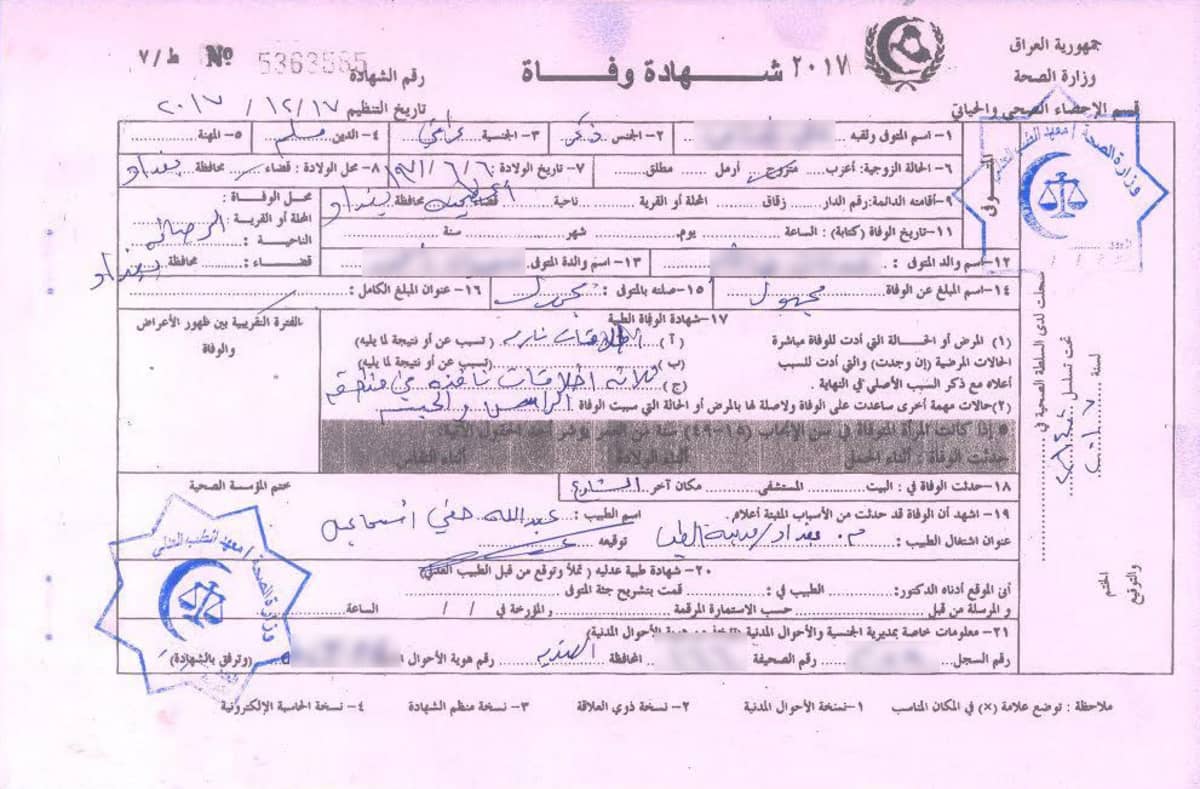 جمهورية العراق
وزارة الصحة
قسم الإحصاء الصحي والحياتي
شـــهادة وفـــاة ٢٠١٧
ط / ٧ № 5363565 رقم الشهادة
تاريخ التنظيم ١٧ / ١٢ / ٢٠١٧
١- اسم المتوفى ولقبه
٢- الجنس ذكر ٣- الجنسية عراقي ٤- الدين مسلم ٥- المهنة
٦- الحالة الزوجية: أعزب متزوج أرمل مطلق
٧- تاريخ الولادة : ٦ / ٦ / ٨- محل الولادة : قضاء محافظة بغداد
٩- أقامته الدائمة: رقم الدار زقاق المحلة أو القرية ناحية قضاء محافظة بغداد
محل الوفاة :
المحلة أو القرية :
الناحية : الرصافة
قضاء : محافظة بغداد
١١- تاريخ الوفاة (كتابة) : الساعة يوم شهر سنة
١٢- اسم والد المتوفى : ١٣- اسم والدة المتوفى
١٤- اسم المبلغ عن الوفاة مجهول ١٥- صلته بالمتوفى : مجهول ١٦- عنوان المبلغ الكامل :
١٧- شهادة الوفاة الطبية
الفترة التقريبية بين ظهور الأعراض والوفاة
(١) المرض أو الحالة التي أدت للوفاة مباشرة (أ) اطلاقات نارية (تسبب عن أو نتيجة لما يليه)
الحالات المرضية (إن وجدت) والتي أدت للسبب (ب) (تسبب عن أو نتيجة لما يليه)
أعلاه مع ذكر السبب الأصلي في النهاية . (ج) ثلاثة اطلاقات نافذة في منطقة
الرأس والجسم
(٢) حالات مهمة أخرى ساعدت على الوفاة ولاصلة لها بالمرض أو الحالة التي سببت الوفاة
* إذا كانت المرأة المتوفاة في سن الإنجاب (١٥-٤٩) سنة من العمر يؤشر أحد الحقول الآتية:
حدثت الوفاة : أثناء الحمل أثناء الولادة أثناء النفاس
١٨- حدثت الوفاة في : البيت المستشفى مكان آخر الشارع
ختم المؤسسة الصحية
١٩- اشهد أن الوفاة قد حدثت من الأسباب المثبتة أعلاه. اسم الطبيب : عبدالله حقي اسماعيل
عنوان اشتغال الطبيب : م. بغداد/مدينة الطب توقيعه
٢٠- شهادة طبية عدلية ( تملأ وتوقع من قبل الطبيب العدلي)
أني الموقع أدناه الدكتور: الطبيب في : قمت بتشريح جثة المتوفى
و المرسلة من قبل حسب الاستمارة المرقمة و المؤرخة في / / الساعة
٢١- معلومات خاصة بمديرية الجنسية والأحوال المدنية
رقم السجل رقم الصحيفة المحافظة رقم هوية الأحوال (وترفق بالشهادة)
المتوفى
سجلت لدى السلطة الصحية في
تحت تسلسل
لسنة
الختم
والتوقيع
وزارة الصحة / معهد الطب العدلي
وزارة الصحة / معهد الطب العدلي
ملاحظة : توضع علامة (×) في المكان المناسب ١- نسخة الأحوال المدنية ٢- نسخة ذوي العلاقة ٣- نسخة منظم الشهادة ٤- نسخة الحاسبة الإلكترونية